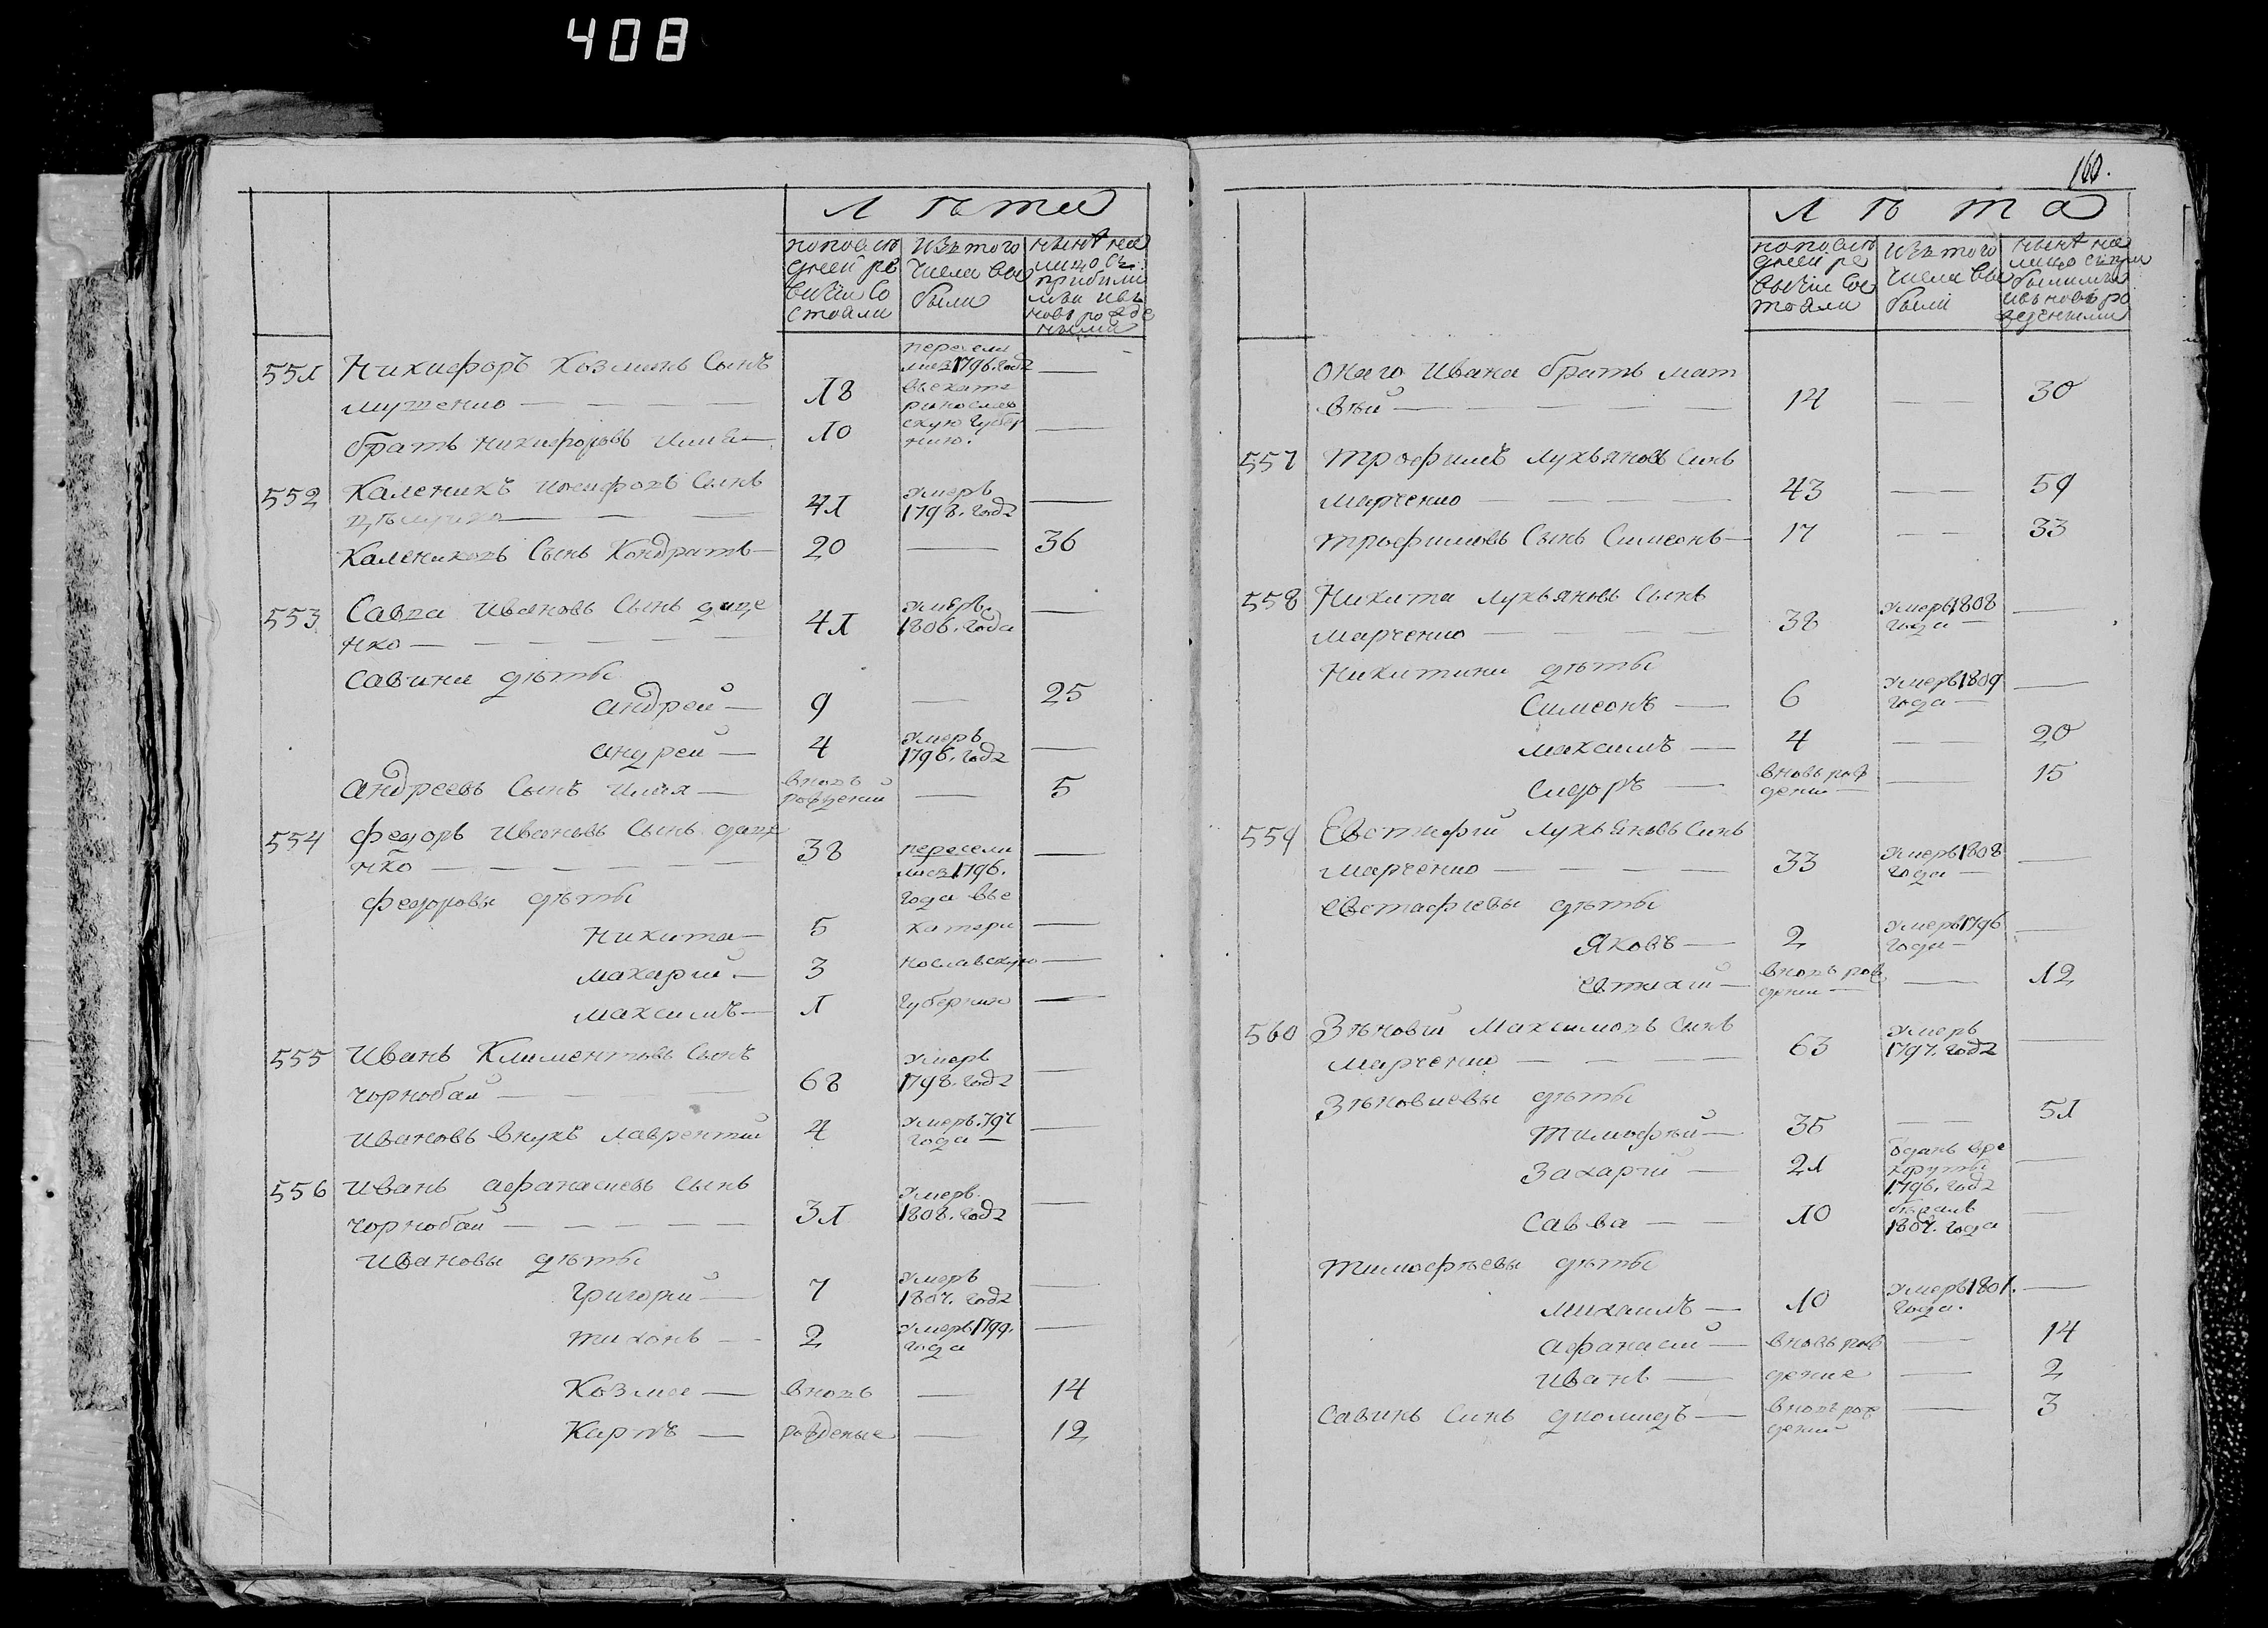 408
Лѣта
попослѣ
дней ре
визіи со
стояли
изъ того
числа вы
были
нынѣ на
лицо съ
прибылы
ми и вь
новь рожде
нными
551 Никифоръ Козминъ Сынъ
18
пересели
лись 1796. года
въ екате
ринослав
скую Губер
нию.
—
братъ Никифоровъ Илия — 10 —
552 Каленикъ Иосифовъ Сынъ
41 умеръ 1798. года —
Калениковъ Сынъ Кондратъ — 20 — 36
553 Савва Ивановъ Сынъ даце
нко — 41 умеръ. 1806. года —
Савины дѣты
Андрей — 9 — 25
андрей — 4 умеръ 1796. года —
Андреевъ Сынъ Илия — вновь рожденый — 5
554 Федоръ Ивановъ Сынъ даце
нко — 38 пересели —
лись 1796.
Федоровы дѣты года въ е
Никита — 5 катери —
Макарий — 3 нославскую —
Максимъ — 1 Губернию —
555 Иванъ Климентовъ Сынъ
чорнобай — 68 умеръ 1798. года —
Ивановъ внукъ Лаврентий 4 умеръ года —
556 Иванъ афанасиевъ Сынъ
чорнобай — 31 умеръ. 1808. года —
Ивановы дѣты
Григорий — 7 умеръ 1807. года —
Тихонъ — 2 умеръ 1799. года —
Козма — вновь — 14
Карпъ — рожденые — 12
160.
Лѣта
попослѣ
дней ре
визіи сос
тояли
изъ того
числа вы
были
нынѣ на
лицо спри
былыми
ивьновь ро
жденными
Онаго Ивана братъ мат
вѣй — 14 — 30
557 Трофимъ Лукьяновъ Синъ
марченко — 43 — 59
Трофимовъ Сынъ Симеонъ — 17 — 33
558 Никита Лукьяновъ Сынъ
марченко — 38 умеръ 1808 года —
Никитины дѣты
Симеонъ — 6 умеръ 1809 года —
максимъ — 4 — 20
Сидоръ — вновь рож дений — 15
559 Евстафий Лукьяновъ Синъ
марченко — 33 умеръ 1808 года —
Евстафиевы дѣты
Яковъ — 2 умеръ 1796 года —
Евтихий — вновь рож дений — 12
560 Зѣновий Максимовъ Синъ
марченко — 63 умеръ 1797. года —
Зѣновиевы дѣты
Тимофѣй — 35 — 51
Захарий — 21 одань в ре круты 1796. года —
Савва — 10 бѣжалъ 1807. года —
Тимофѣевы дѣты
михаилъ — 10 умеръ 1801. года. —
афанасий — вновь рож — 14
Иванъ — дение — 2
Савинъ Синъ диомидъ — вновь рож дений — 3